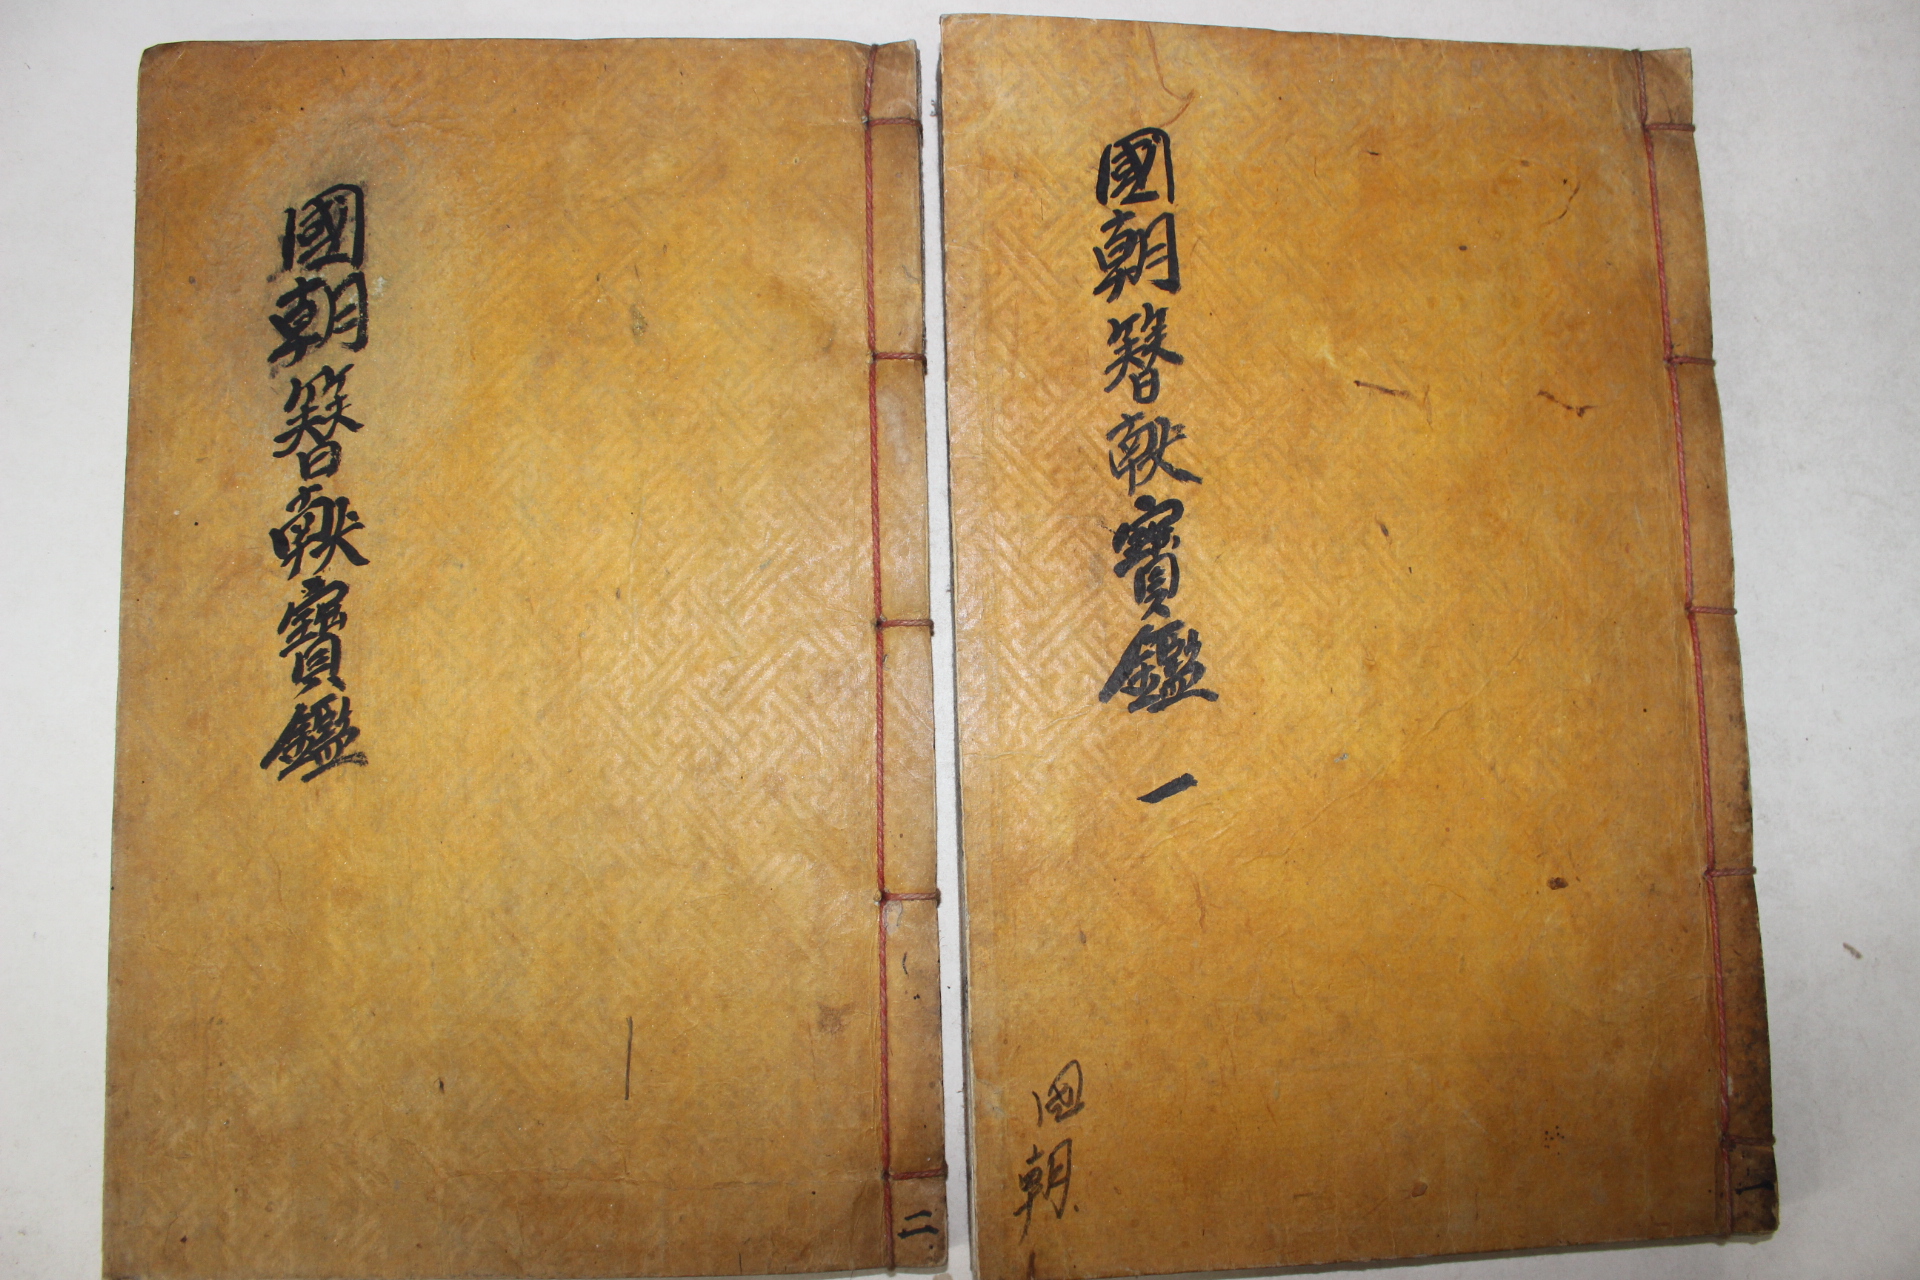 國朝簪献寶鑑 一
國朝
一
國朝簪献寶鑑
二